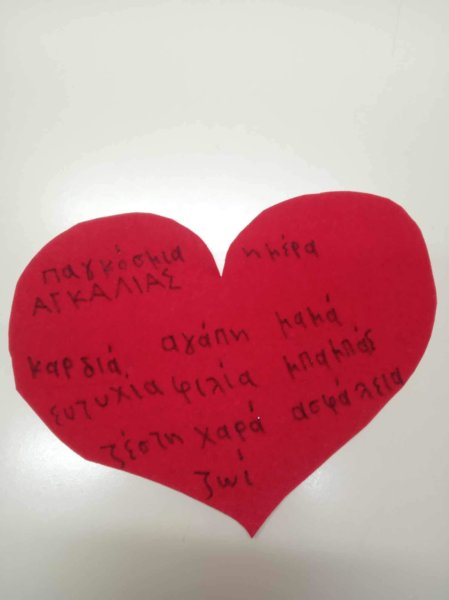 παγκόσμια ημέρα
ΑΓΚΑΛΙΑΣ
καρδιά αγάπη μαμά
ευτυχια φιλία μπαμπάς
ζέστη χαρά ασφάλεια
ζωί